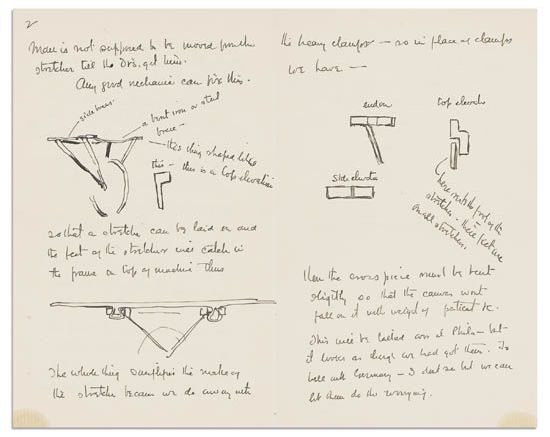 2
Man is not supposed to be moved from the
stretcher till the Drs. get him.
Any good mechanic can fix this.
side brace
a bent iron or steel
brace —
this thing shaped like
this — this is a top elevation
so that a stretcher can be laid on and
the feet of the stretcher will catch in
the frame on top of machine thus
The whole thing simplifies the make of
the stretcher because we do away with
the heavy clamps — so in place of clamps
we have —
end on
top elevation
side elevation
here rests the foot of the
stretcher — these feet are
on all stretchers.
Then the cross piece must be bent
slightly so that the canvas wont
fall on it with weight of patient &c.
This will be at Phila — but
it looks as though we had got them. To
hell with Germany — I but we can
let them do the worrying.